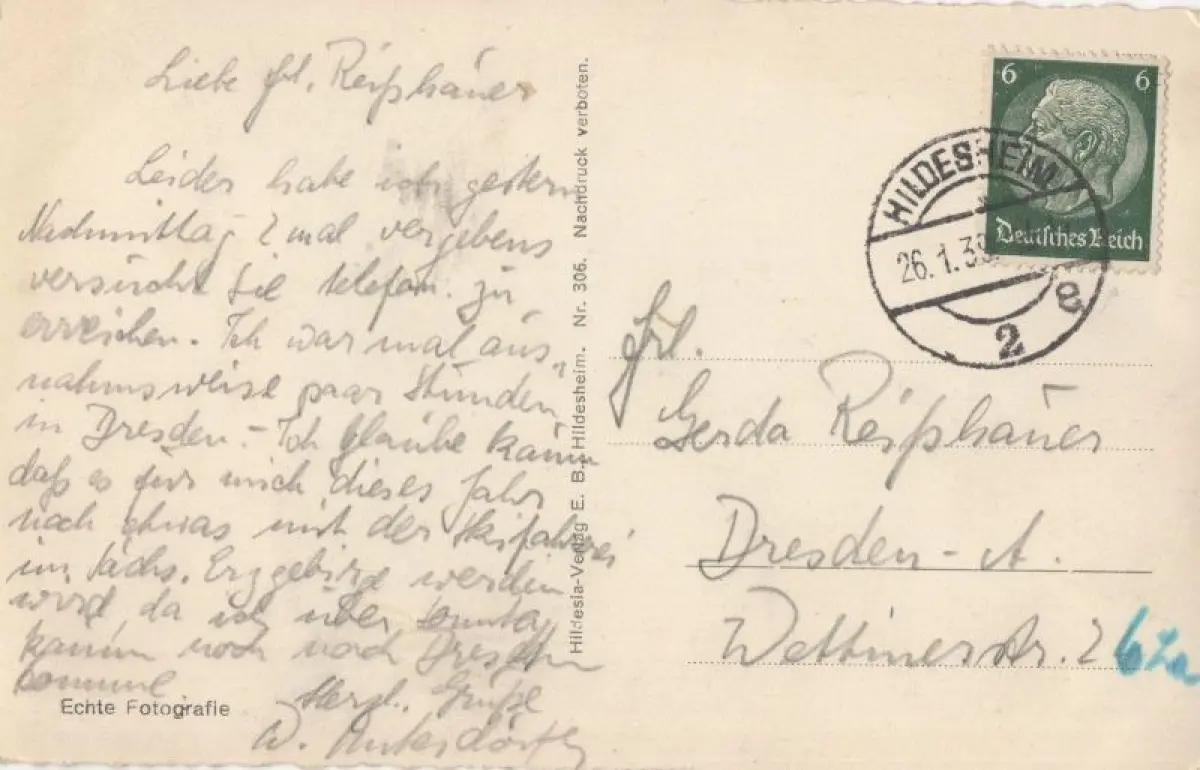 Liebe Frl. Reißhauer
Leider habe ich gestern
Nachmittag 2 mal vergebens
versucht Sie telefon. zu
erreichen. Ich war mal aus-
nahmsweise paar Stunden
in Dresden. - Ich glaube kaum
daß es für mich dieses Jahr
noch etwas mit der Skifahrei
im Sächs. Erzgebirge werden
wird, da ich über Sonntag
kaum noch nach Dresden
komme
Herzl. Grüße
Echte Fotografie
Hildesia-Verlag E. B., Hildesheim. Nr. 306. Nachdruck verboten.
6 6
Deutsches Reich
HILDESHEIM
26.1.39
2
Frl.
Gerda Reißhauer
Dresden - A.
Wettinerstr. 2